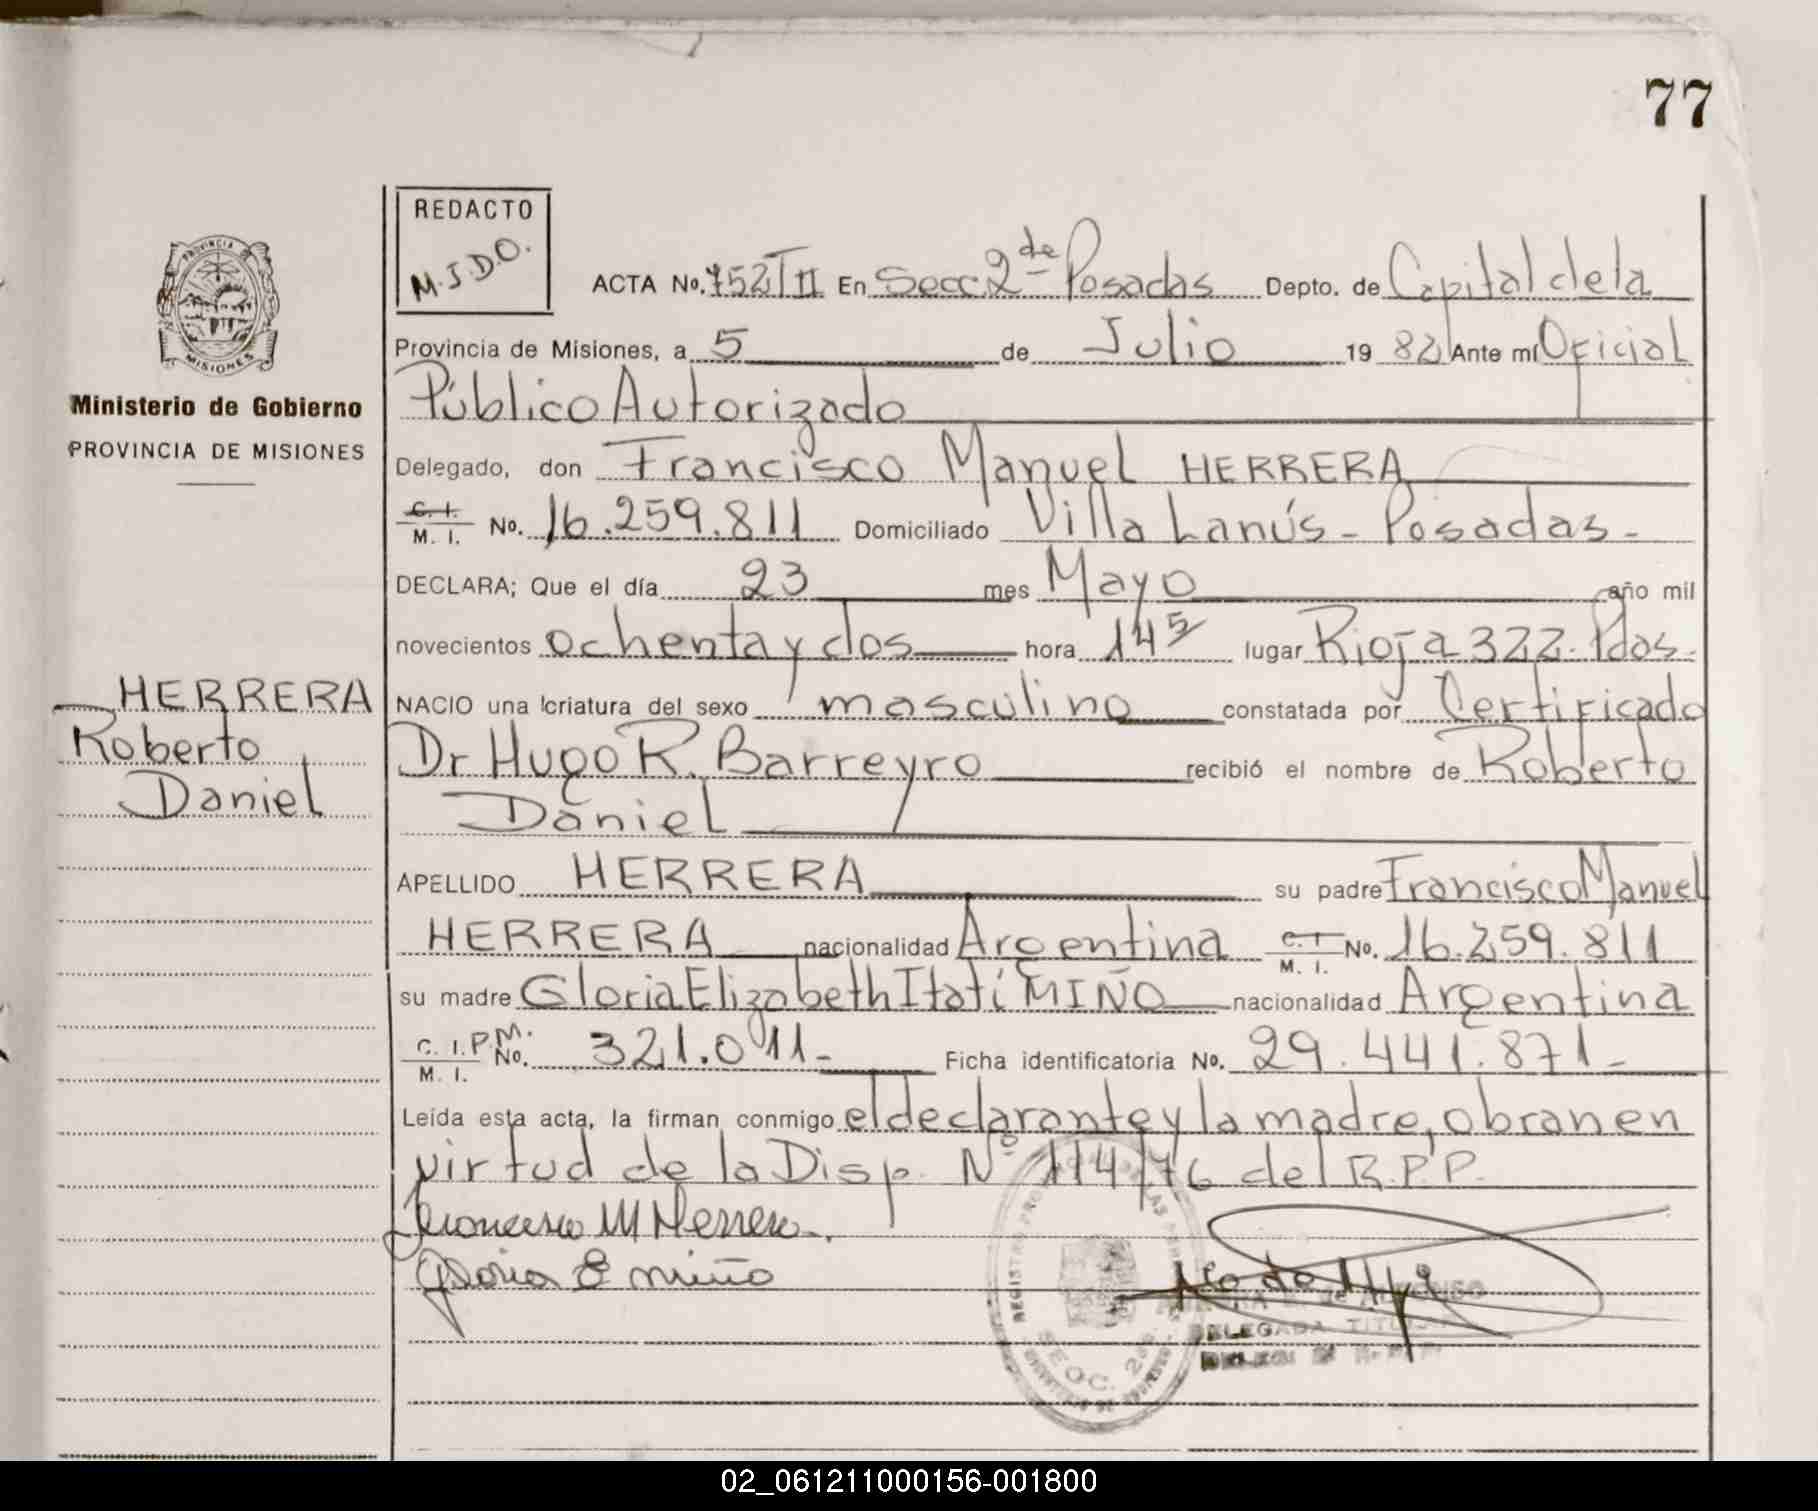 77
REDACTO
M.J.D.O.
PROVINCIA
MISIONES
Ministerio de Gobierno
PROVINCIA DE MISIONES
ACTA No. 752/TII En Secc 2da Posadas Depto. de Capital de la
Provincia de Misiones, a 5 de Julio 19 82 Ante mí Oficial
Público Autorizado
Delegado, don Francisco Manuel HERRERA
C. I. M. I. No. 16.259.811 Domiciliado Villa Lanús - Posadas -
DECLARA; Que el día 23 mes Mayo año mil
novecientos ochenta y dos hora 14 5/ lugar Rioja 322. Pdas.
HERRERA
Roberto
Daniel
NACIO una criatura del sexo masculino constatada por Certificado
Dr Hugo R. Barreyro recibió el nombre de Roberto
Daniel
APELLIDO HERRERA su padre Francisco Manuel
HERRERA nacionalidad Argentina C. I. M. I. No. 16.259.811
su madre Gloria Elizabeth Itatí MIÑO nacionalidad Argentina
C. I. P.M. M. I. No. 321.011- Ficha identificatoria No. 29.441.871-
Leída esta acta, la firman conmigo el declarante y la madre, obran en
virtud de la Disp. Nº 114/76 del R.P.P.
Francisco M Herrera.
Gloria E miño
SECC. 2da.
DELEGADA TITULAR
02_061211000156-001800